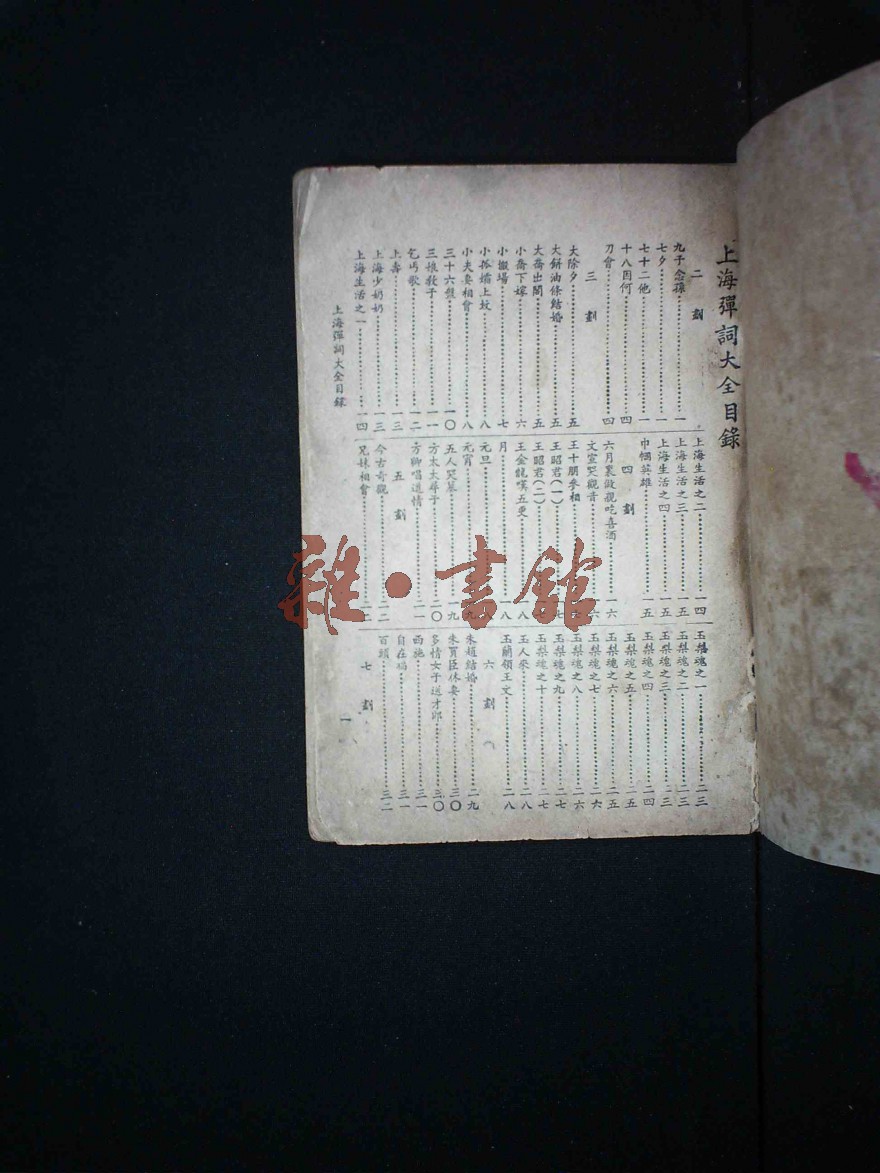 上海彈詞大全目錄
二劃
九子念孫 一
七夕 一
七十二他 一
十八因何 四
刀會 四
三劃
大除夕 五
大餅油條結婚 五
大喬出閣 五
小喬下嫁 六
小搬場 七
小孤孀上坟 八
小夫妻相會 八
三十六髻 一〇
三娘教子 一一
乞丐歌 一二
上壽 一三
上海少奶奶 一三
上海生活之一 一四
上海生活之二 一四
上海生活之三 一五
上海生活之四 一五
巾幗英雄 一五
四劃
六月裏做親吃喜酒 一六
文宣哭觀音 六
王十朋參相
王昭君(一)
王昭君(二) 八
王金龍嘆五更 八
月 一八
元旦
元宵
五人哭墓 一九
方太太導子 二〇
方卿唱道情 二一
五劃
今古奇觀 二二
兄妹相會 二二
玉梨魂之一 二三
玉梨魂之二 二三
玉梨魂之三 二三
玉梨魂之四 二四
玉梨魂之五 二五
玉梨魂之六 二五
玉梨魂之七 二六
玉梨魂之八 二六
玉梨魂之九 二七
玉梨魂之十 二七
玉人來 二八
玉蘭領王文 二八
六劃
朱趙結婚 二九
朱買臣休妻 三〇
多情女子送才郎 三〇
西施 三一
自在福 三一
百頭 三二
七劃
上海彈詞大全目錄
一
雜·書館